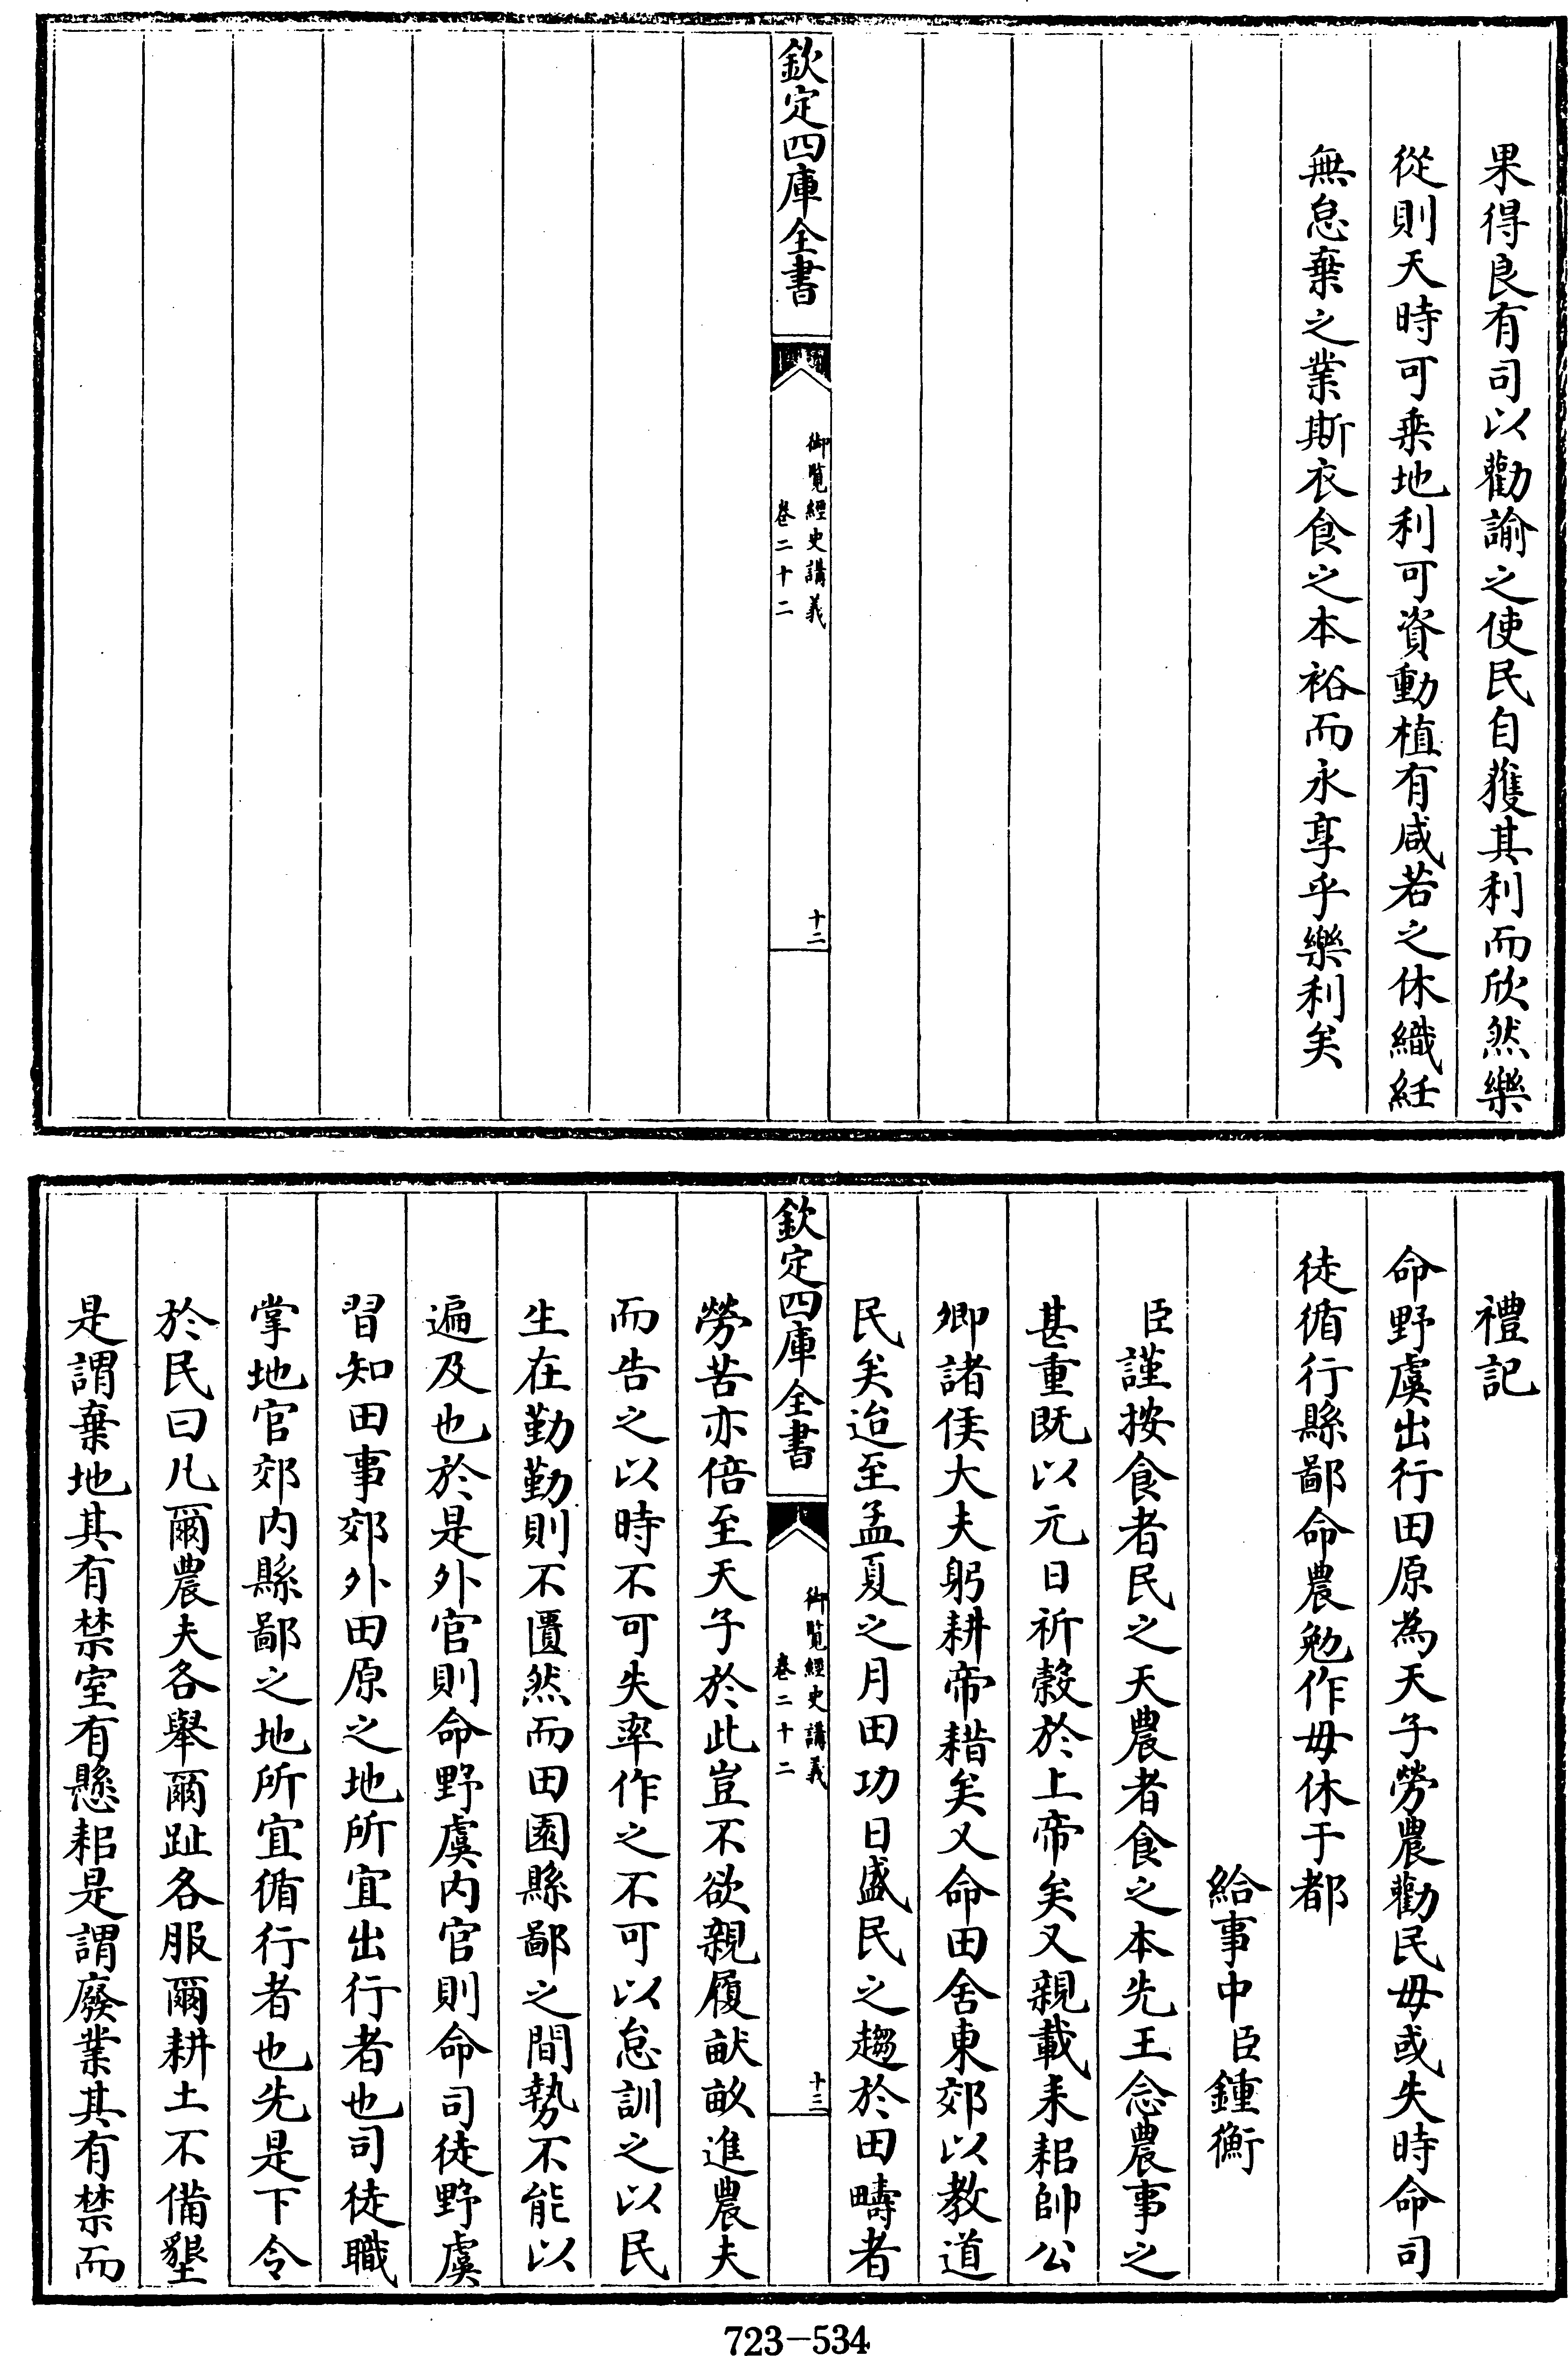 果得良有司以勸諭之使民自獲其利而欣然樂
從則天時可乗地利可資動植有咸若之休織紝
無怠棄之業斯衣食之本裕而永享乎樂利矣
欽定四庫全書
御覧經史講義
卷二十二
十二
禮記
命野虞出行田原為天子勞農勸民毋或失時命司
徒循行縣鄙命農勉作毋休于都
給事中臣鍾衡
臣謹按食者民之天農者食之本先王念農事之
甚重既以元日祈穀於上帝矣又親載耒耜帥公
卿諸侯大夫躬耕帝耤矣又命田舍東郊以教道
民矣迨至孟夏之月田功日盛民之趨於田疇者
欽定四庫全書
御覧經史講義
卷二十二
十三
勞苦亦倍至天子於此豈不欲親履畎畝進農夫
而告之以時不可失率作之不可以怠訓之以民
生在勤勤則不匱然而田園縣鄙之間勢不能以
遍及也於是外官則命野虞内官則命司徒野虞
習知田事郊外田原之地所宜出行者也司徒職
掌地官郊内縣鄙之地所宜循行者也先是下令
於民曰凡爾農夫各舉爾趾各服爾耕土不備墾
是謂棄地其有禁室有懸耜是謂廢業其有禁而
723-534